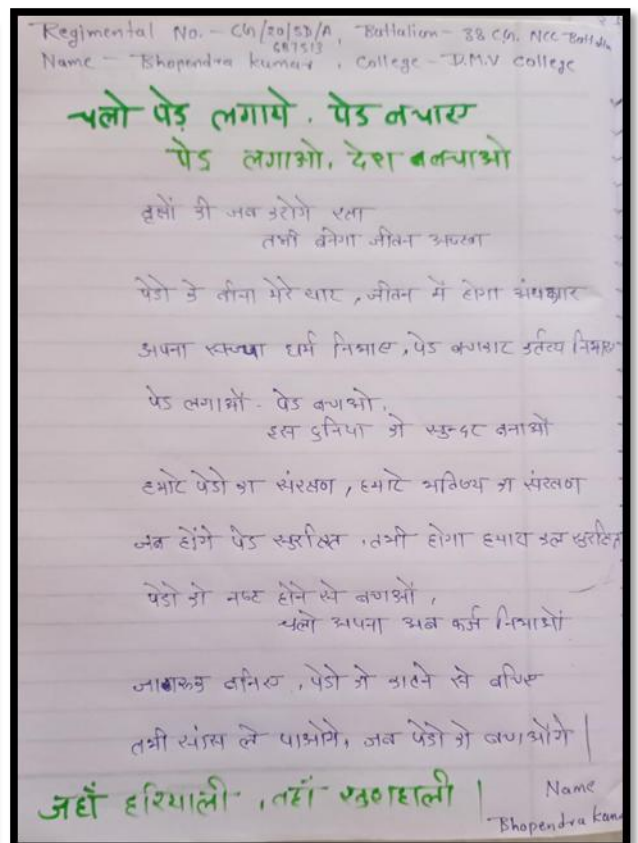 Regimental No. - CG/20/SD/A, Battalion - 38 CG. NCC Battalion
687513
Name - Bhopendra kumar, College - D.M.V College
चलो पेड़ लगाये. पेड बचाए
पेड लगाओ, देश बचाओ
वृक्षों की जब करोगे रक्षा
तभी बनेगा जीवन अच्छा
पेडो के बीना मेरे यार, जीवन में होगा अंधकार
अपना सच्चा धर्म निभाए, पेड बचाकर कर्तव्य निभाए
पेड लगाओ - पेड बचाओ,
इस दुनिया को सुन्दर बनाओ
हमारे पेडो का संरक्षण, हमारे भविष्य का संरक्षण
जब होंगे पेड सुरक्षित, तभी होगा हमारा कल सुरक्षित
पेडो को नष्ट होने से बचाओं,
चलो अपना अब कर्ज निभाओं
जागरूक बनिए, पेडो को काटने से बचिए
तभी सांस ले पाओगे, जब पेडो को बचाओगे |
जहाँ हरियाली, तहाँ खुशहाली |
Name
Bhopendra kum